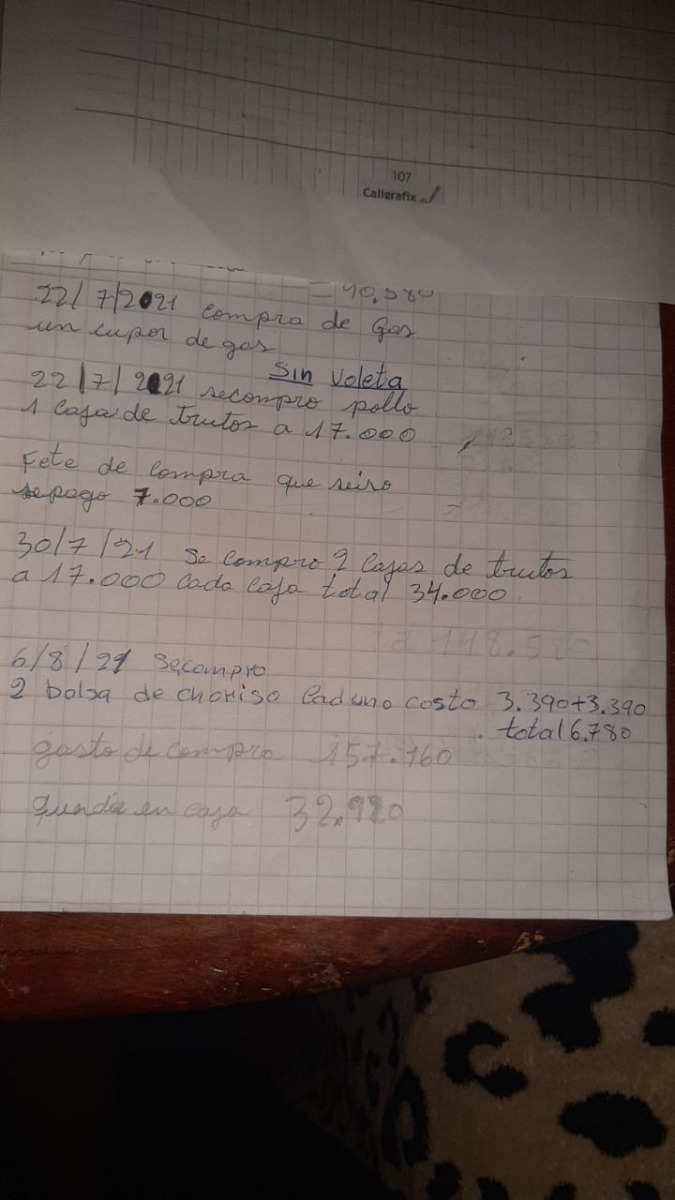 107
Caligrafix
= 40.580
22/7/2021 compra de Gas
un cupon de gas
Sin Voleta
22/7/2021 secompro pollo
1 Caja de trutos a 17.000
Fete de compra que seiso
sepago 7.000
30/7/21 Se compro 2 Cajas de trutos
a 17.000 cada caja total 34.000
148.580
6/8/21 Secompro
2 bolsa de choriso Caduno costo 3.390+3.390
total 6.780
gasto de compra 157.160
queda en caja 32.920